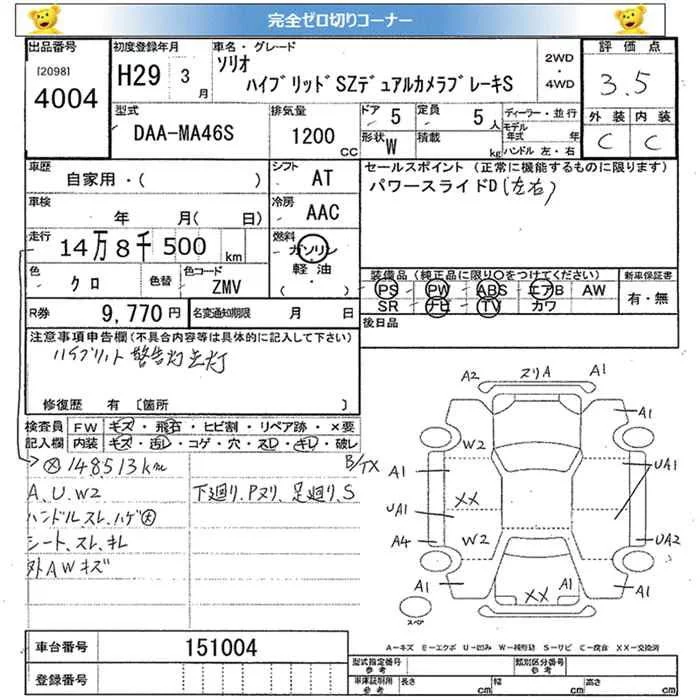 完全ゼロ切りコーナー
出品番号
[2098]
4004
初度登録年月
H29 3 月
車名・グレード
ソリオ
ハイブリッドSZデュアルカメラブレーキS
2WD
・
4WD
評価点
3.5
外装 内装
C C
型式
DAA-MA46S
排気量
1200 CC
ドア 5
定員 5 人
形状 W
積載 kg
ディーラー・並行
モデル年式 年
ハンドル 左・右
車歴
自家用・( )
シフト AT
車検
年 月( 日)
冷房 AAC
走行
14万8千500 km
燃料
ガソリン
軽油
・
( )
色 クロ
色替
色コード ZMV
R券 9,770 円
名変通知期限 月 日
セールスポイント (正常に機能するものに限ります)
パワースライドD(左右)
装備品 (純正品に限り○をつけてください)
新車保証書
PS PW ABS エアB AW
SR ナビ TV カワ
有・無
後日品
注意事項申告欄(不具合内容等は具体的に記入して下さい)
ハイブリット 警告灯点灯
修復歴 有 [箇所 ]
検査員
記入欄
FW キズ・飛石・ヒビ割・リペア跡・×要
内装 キズ・汚レ・コゲ・穴・スレ・キレ・破レ
148513km
A、U、W2
ハンドルスレ、ハゲ大
シート、スレ、キレ
外AWキズ
下廻り、Pヌリ、足廻り、S
B/TX
A2 スリA A1
A1
W2
A1
UA1
UA1
XX
A4
W2
UA2
A1
XX
A1
A1
スペア
A-キズ E-エクボ U-凹み W-補修跡 S-サビ C-腐食 XX-交換済
車台番号 151004
登録番号
型式指定番号
参考
類別区分番号
参考
車庫証明用
参考
長さ cm
幅 cm
高さ cm